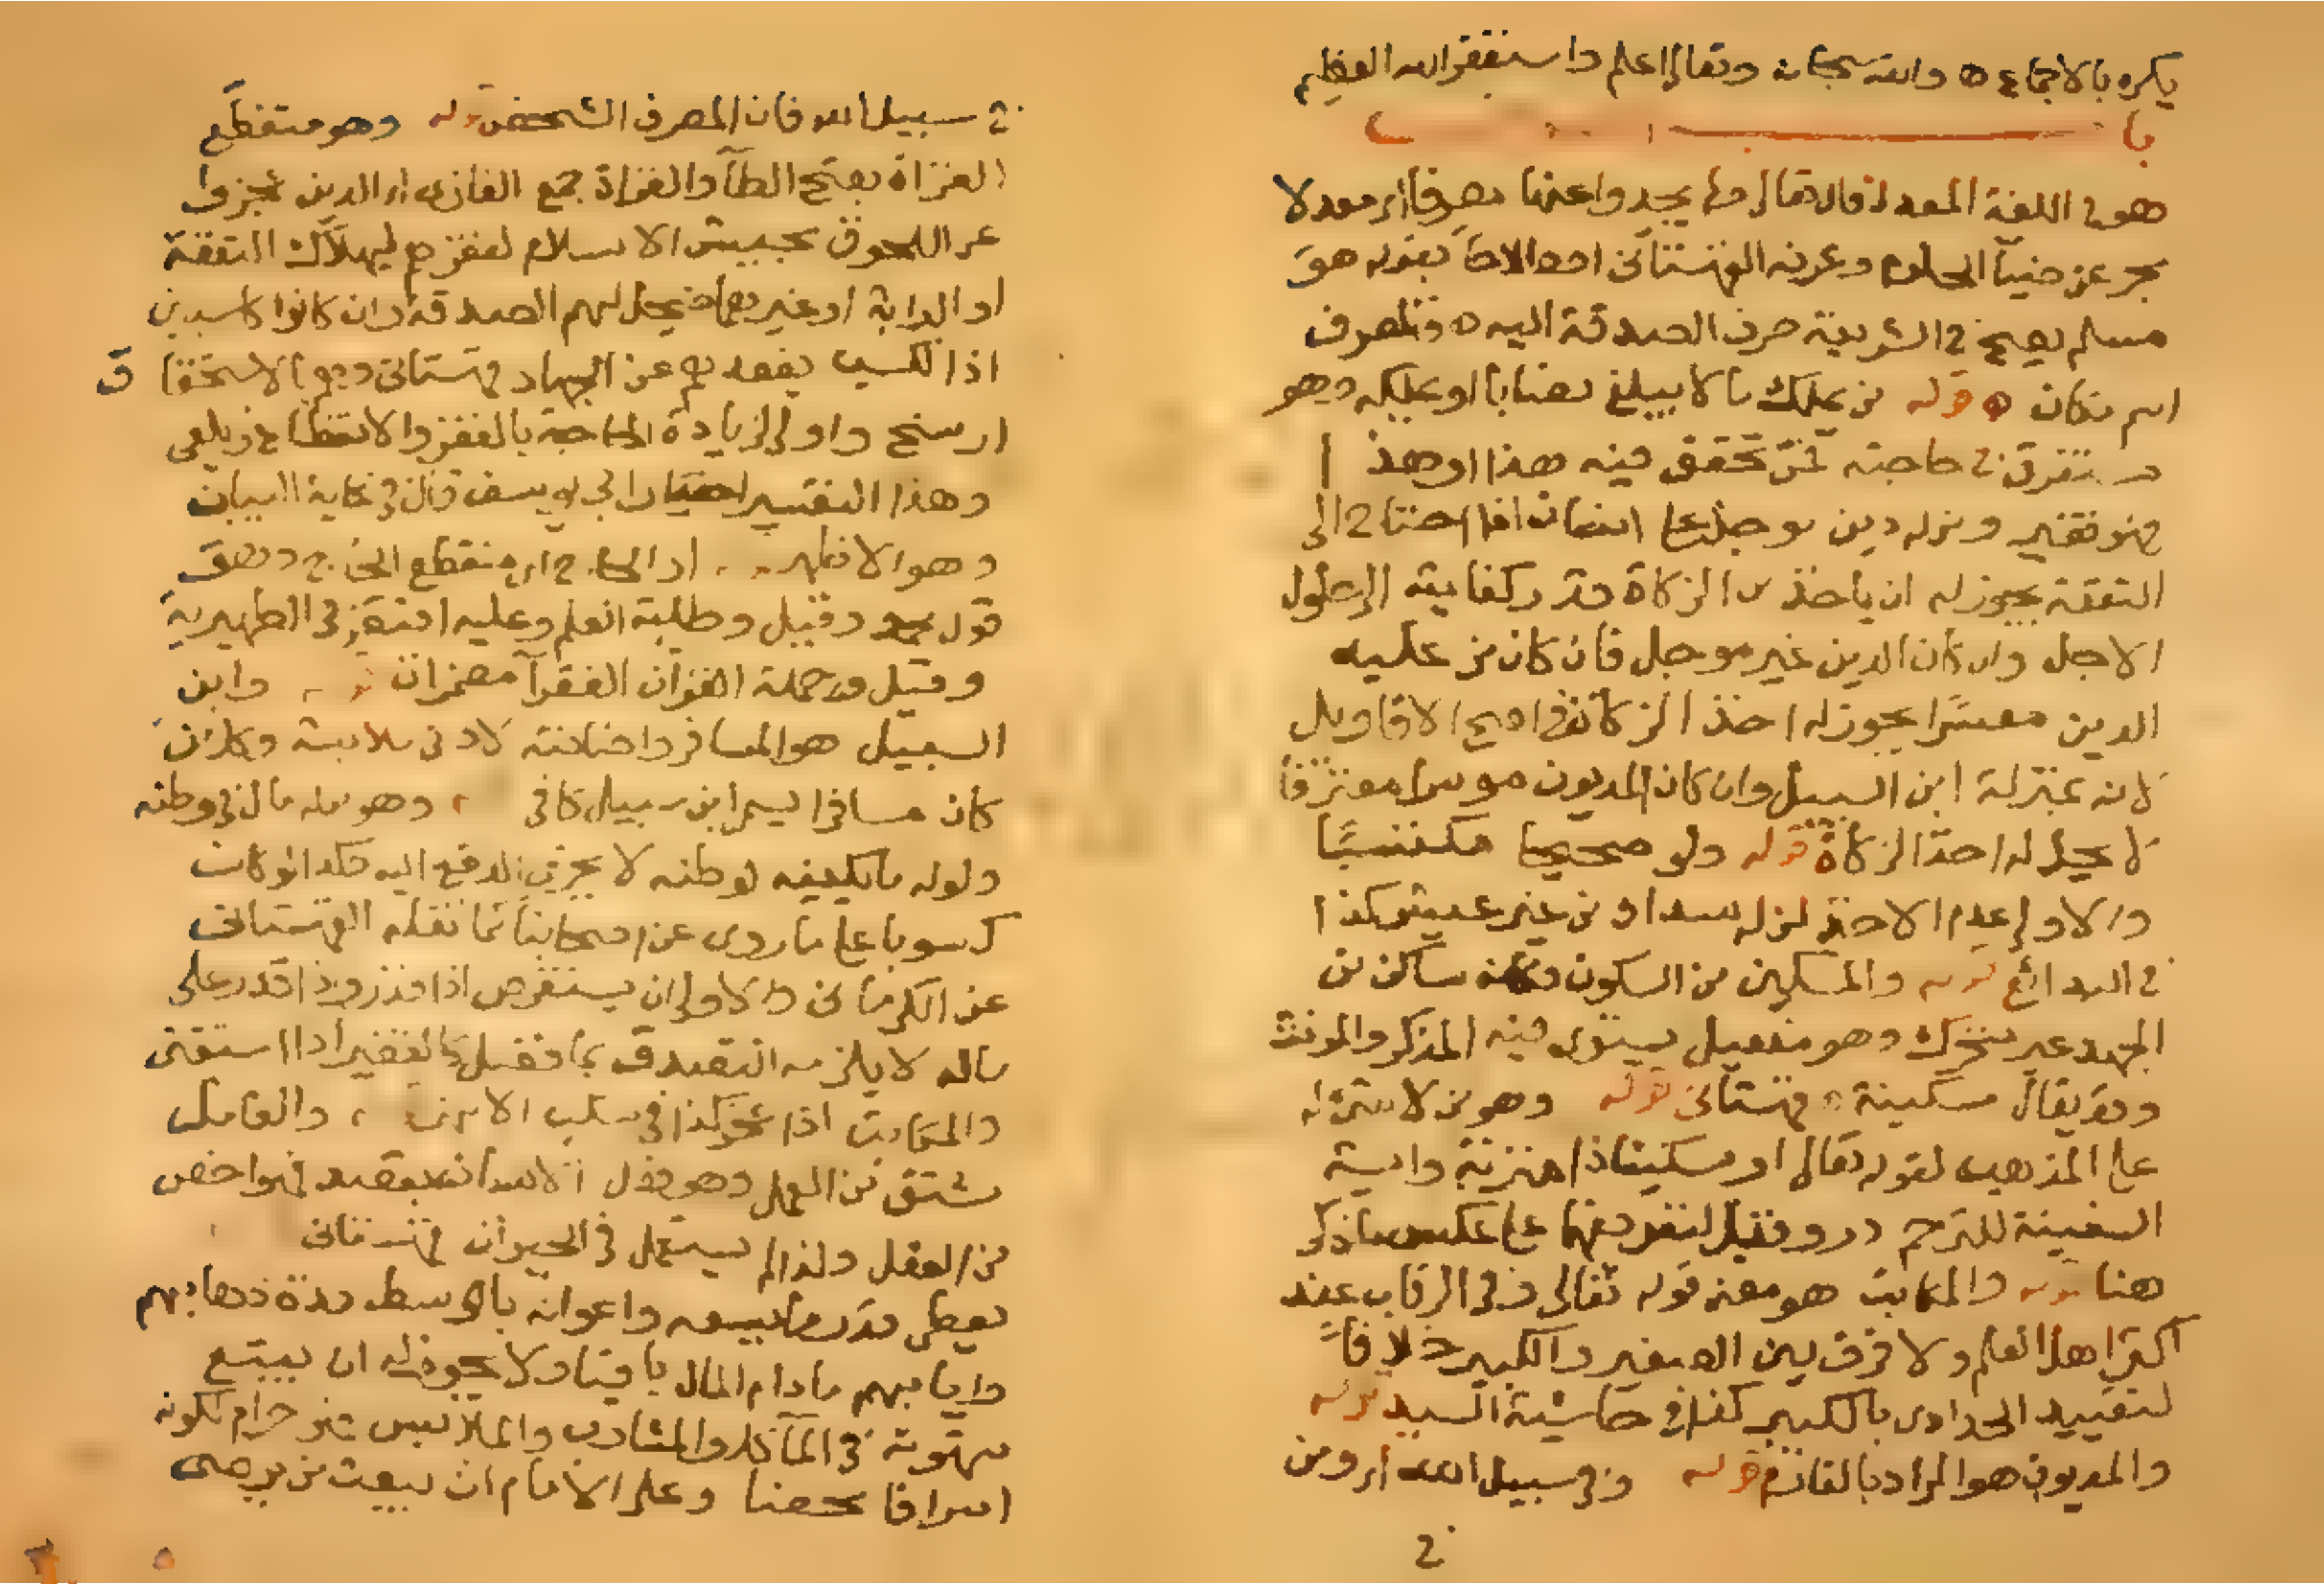 يكره بالاجماع ه والله سبحانه وتعالى اعلم واستغفر الله العظيم
باب
هو في اللغة المعدل قال تعالى ولم يجدوا عنها مصرفا اي معدلا
مسلم يصح في الشريعة صرف الصدقة اليه ه والمصرف
اسم مكان ه قوله من يملك ما لا يبلغ نصابا او يملكه وهو
مستغرق في حاجته تحقق فيه هذا او هذا
فهو فقير ومن له دين موجل على انسان اذا احتاج الى
النفقة يجوز له ان ياخذ من الزكاة قدر كفايته الى حلول
الاجل وان كان الدين غير موجل فان كان من عليه
الدين معسرا يجوز له اخذ الزكاة في اصح الاقاويل
لانه بمنزلة ابن السبيل وان كان المديون موسرا معترفا
لا يحل له اخذ الزكاة قوله ولو صحيحا مكتسبا
والاولى عدم الاخذ لمن له سداد من عيش كذا
في البدائع قوله والمسكين من السكون فكانه ساكن من
الجهد غير متحرك وهو مفعيل يستوي فيه المذكر والمونث
وقد يقال مسكينة ه قهستاني قوله وهو من لا شئ له
على المذهب لقوله تعالى او مسكينا ذا متربة واية
السفينة للترحم در وقيل تعريفهما على عكس ما ذكر
هنا قوله والمكاتب هو معنى قوله تعالى وفي الرقاب عند
اكثر اهل العلم ولا فرق بين الصغير والكبير خلافا
لتقييد الحدادي بالكبير كذا في حاشية السيد قوله
والمديون هو المراد بالغارم قوله وفي سبيل الله اي ومن
في
في سبيل الله فان المصرف الشخص قوله وهو منقطع
الغزاة بفتح الطآ والغزاة جمع الغازي اي الذين عجزوا
عن اللحوق بجيش الاسلام لفقرهم لهلاك النفقة
او الدابة او غيرهما فيحل لهم الصدقة وان كانوا كاسبين
اذ الكسب يقعدهم عن الجهاد قهستاني وهو بالاستحقاق
ارسخ واولى لزيادة الحاجة بالفقر والانقطاع زيلعي
وهذا التفسير اختيار ابي يوسف قال في غاية البيان
وهو الاظهر او الحاج اي منقطع الحاج وهو
قول محمد وقيل وطلبة العلم وعليه اقتصر في الظهيرية
وقيل وحملة القرآن الفقرآ مضمرات وابن
السبيل هو المسافر واضافته لادنى ملابسة وكل من
كان مسافرا يسمى ابن سبيل كافي وهو من له مال في وطنه
ولو له ما يكفيه لوطنه لا يجزي الدفع اليه
كسوبا على ما روي عن اصحابنا كما نقله القهستاني
عن الكرماني والاولى ان يستقرض اذا قدر واذا قدر على
ماله لا يلزمه التصدق بما فضل كالفقير اذا استغنى
والمكاتب اذا عجز كذا في والعامل
مشتق من العمل وهو فعل الانسان بقصد فهو اخص
من الفعل ولذا لم يستعمل في الحيوان قهستاني
يعطى قدر ما يسعه واعوانه بالوسط مدة ذهابهم
وايابهم ما دام المال باقيا ولا يجوز له ان يتبع
شهوته في المآكل والمشارب والملابس فهو حرام لكونه
اسرافا محضا وعلى الامام ان يبعث من يرضى